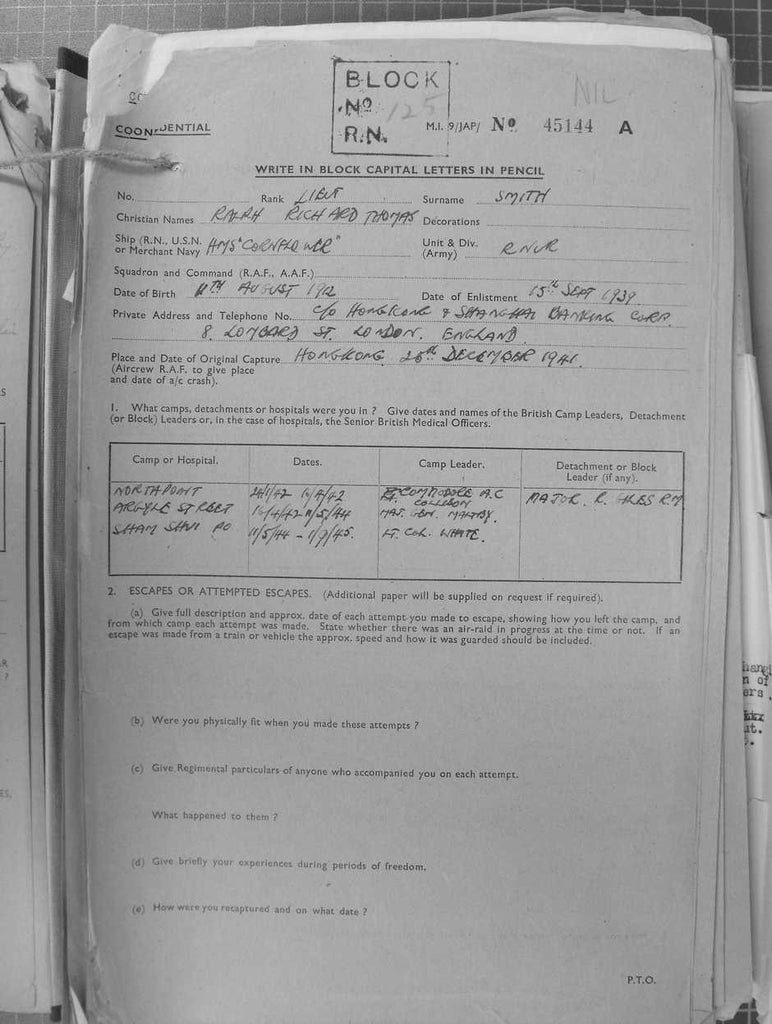 BLOCK
Nº 125
R.N.
NIL
CONFIDENTIAL
M.I. 9/JAP/ Nº 45144 A
WRITE IN BLOCK CAPITAL LETTERS IN PENCIL
No. Rank LIEUT Surname SMITH
Christian Names RALPH RICHARD THOMAS Decorations
Ship (R.N., U.S.N. or Merchant Navy HMS "CORNFLOWER" Unit & Div. (Army) RNVR
Squadron and Command (R.A.F., A.A.F.)
Date of Birth 11TH AUGUST 1912 Date of Enlistment 15th SEPT 1939
Private Address and Telephone No. C/o HONGKONG & SHANGHAI BANKING CORP.
8. LOMBARD ST. LONDON. ENGLAND
Place and Date of Original Capture HONGKONG 25th DECEMBER 1941.
(Aircrew R.A.F. to give place
and date of a/c crash).
1. What camps, detachments or hospitals were you in ? Give dates and names of the British Camp Leaders, Detachment
(or Block) Leaders or, in the case of hospitals, the Senior British Medical Officers.
Camp or Hospital. Dates. Camp Leader. Detachment or Block Leader (if any).
NORTH POINT /1/42 /4/42 COMMODORE A.C COLLISON MAJOR. R. GILES RM
ARGYLE STREET /4/42 11/5/44 MAJ. GEN. MALTBY.
SHAM SHUI PO 11/5/44 - 1/9/45. LT. COL. WHITE.
2. ESCAPES OR ATTEMPTED ESCAPES. (Additional paper will be supplied on request if required).
(a) Give full description and approx. date of each attempt you made to escape, showing how you left the camp, and
from which camp each attempt was made. State whether there was an air-raid in progress at the time or not. If an
escape was made from a train or vehicle the approx. speed and how it was guarded should be included.
(b) Were you physically fit when you made these attempts ?
(c) Give Regimental particulars of anyone who accompanied you on each attempt.
What happened to them ?
(d) Give briefly your experiences during periods of freedom.
(e) How were you recaptured and on what date ?
P.T.O.